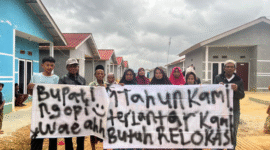 Bupati
ngopi
wae ah
1 Tahun Kami
terlantar Kami
Butuh RELOKASI